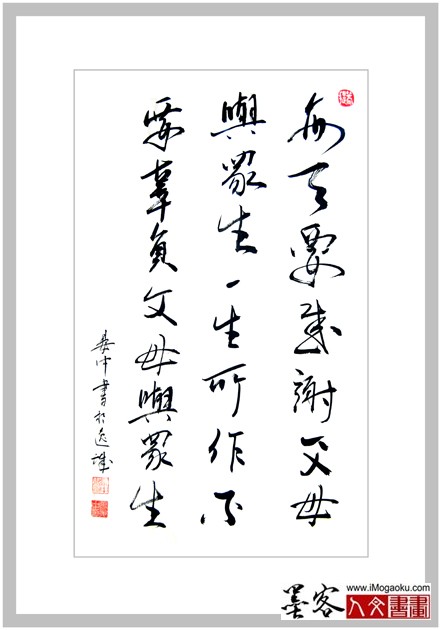 每天要感謝父母
與眾生一生所作不
要辜負父母與眾生
書於逸
墨客
www.iMogaoku.com
人文書畫